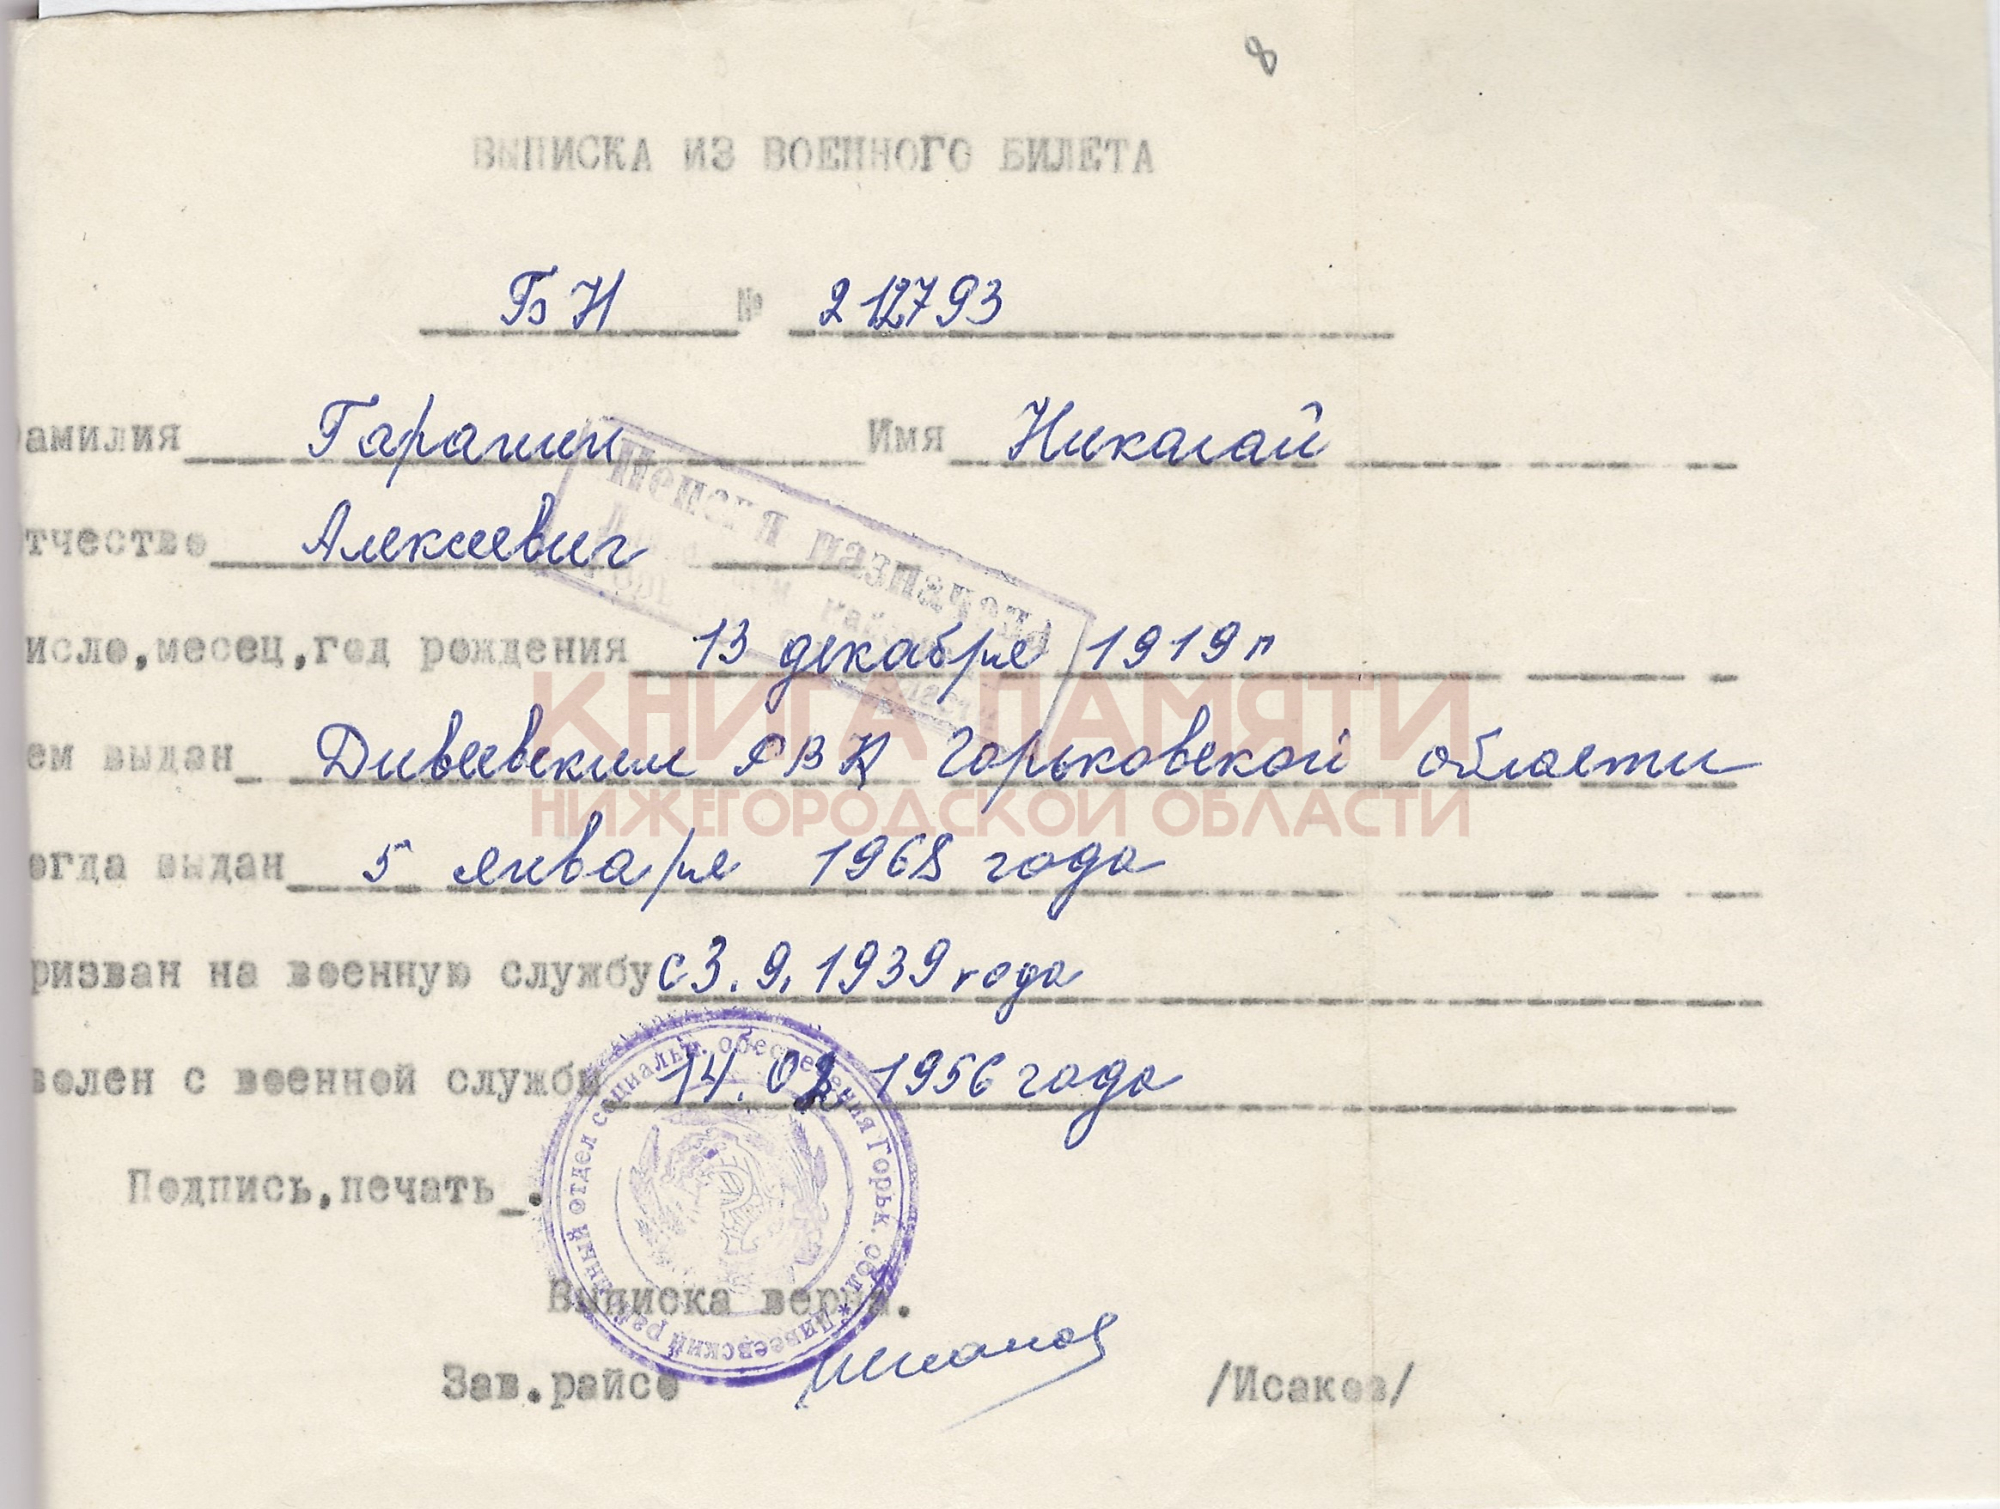 8
ВЫПИСКА ИЗ ВОЕННОГО БИЛЕТА
БН № 212793
амилия Гаранин Имя Николай
тчество Алексеевич
Пенсия назначена
исло,месец,год рождения 13 декабря 1919 г
КНИГА ПАМЯТИ
ем выдан Дивеевским РВК Горьковской области
НИЖЕГОРОДСКОЙ ОБЛАСТИ
огда выдан 5 января 1968 года
ризван на военную службу с 3.9.1939 года
волен с военной службы 14.02.1956 года
Подпись,печать
Дивеевский районный отдел социальн. обеспечения Горьк. обл. *
Выписка верна.
Зав.райсо /Исаков/